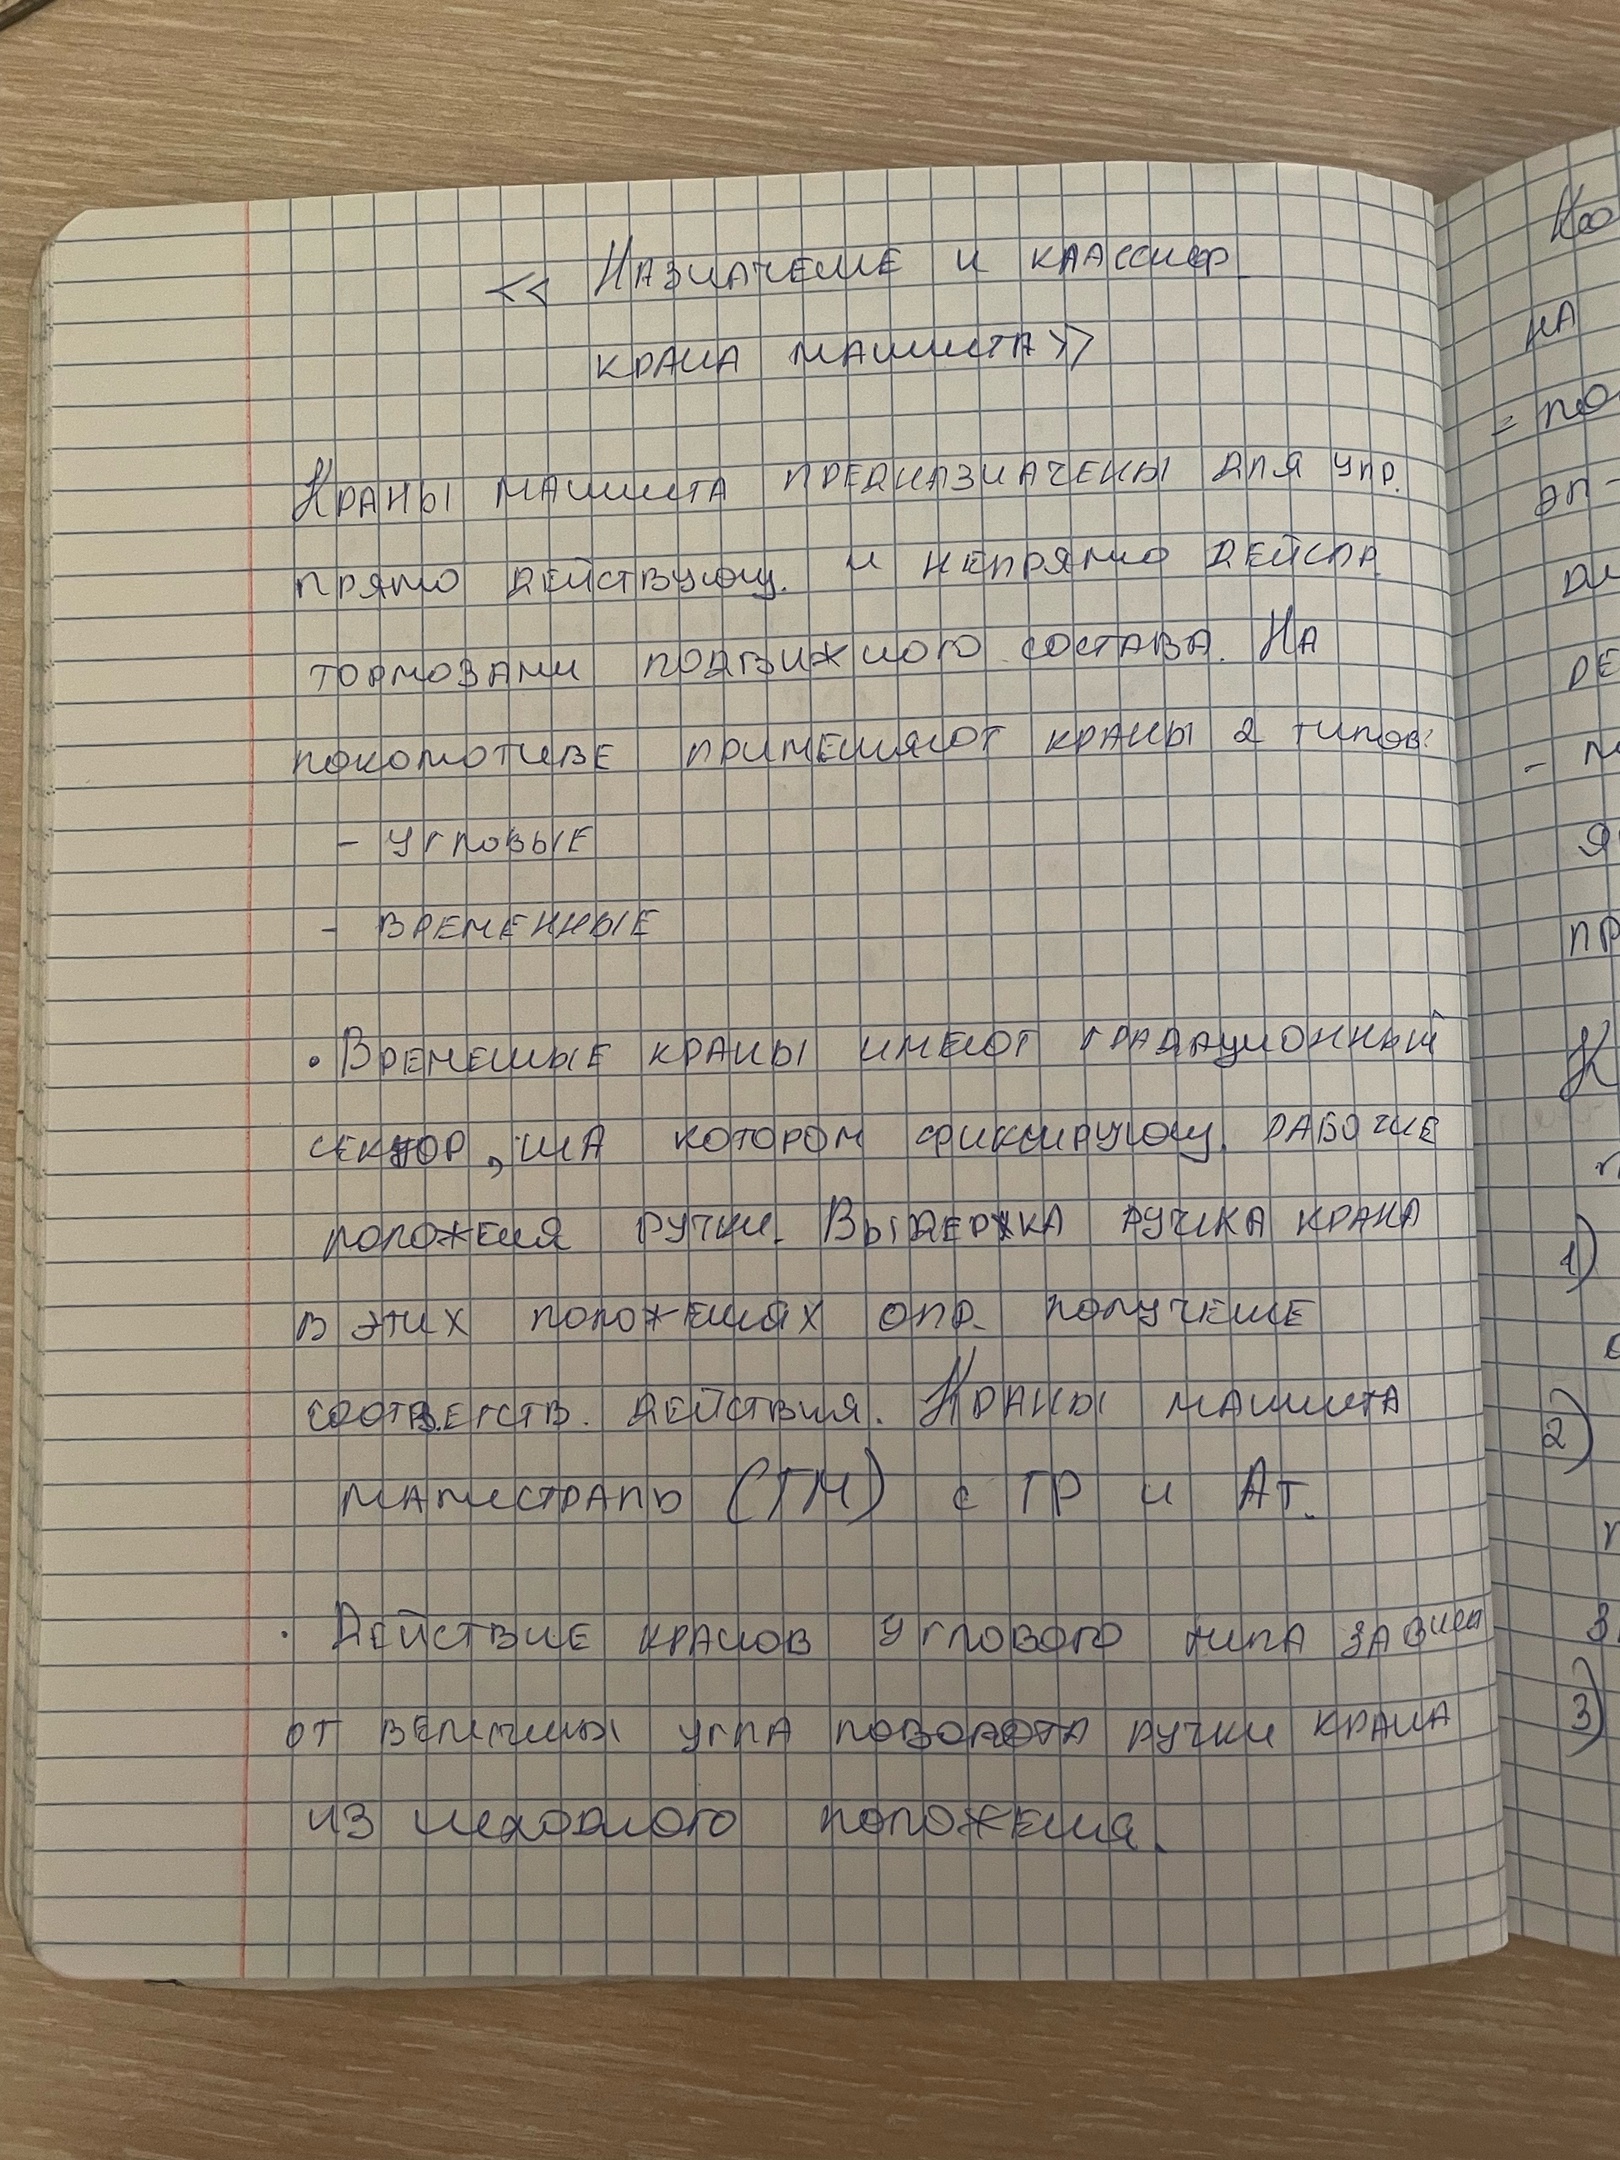 << Назначение и классиф.
крана машиниста>>
Краны машиниста предназначены для упр.
прямо действующ. и непрямо дейспр.
тормозами подвижного состава. На
локомотиве применяют краны 2 типов:
- угловые
- временные
• Временные краны имеют градационный
сектор, на котором фиксирующ. рабочие
положения ручки. Выдержка ручка крана
в этих положениях опр. получение
соответств. действия. Краны машиниста
магистраль (ТМ) с ГР и Ат.
· Действие кранов углового типа зависит
от величины угла поворота ручки крана
из исходного положения.
Ко
на
= по
эп-
ди
ре
-
я
пр
К
1)
2)
3)